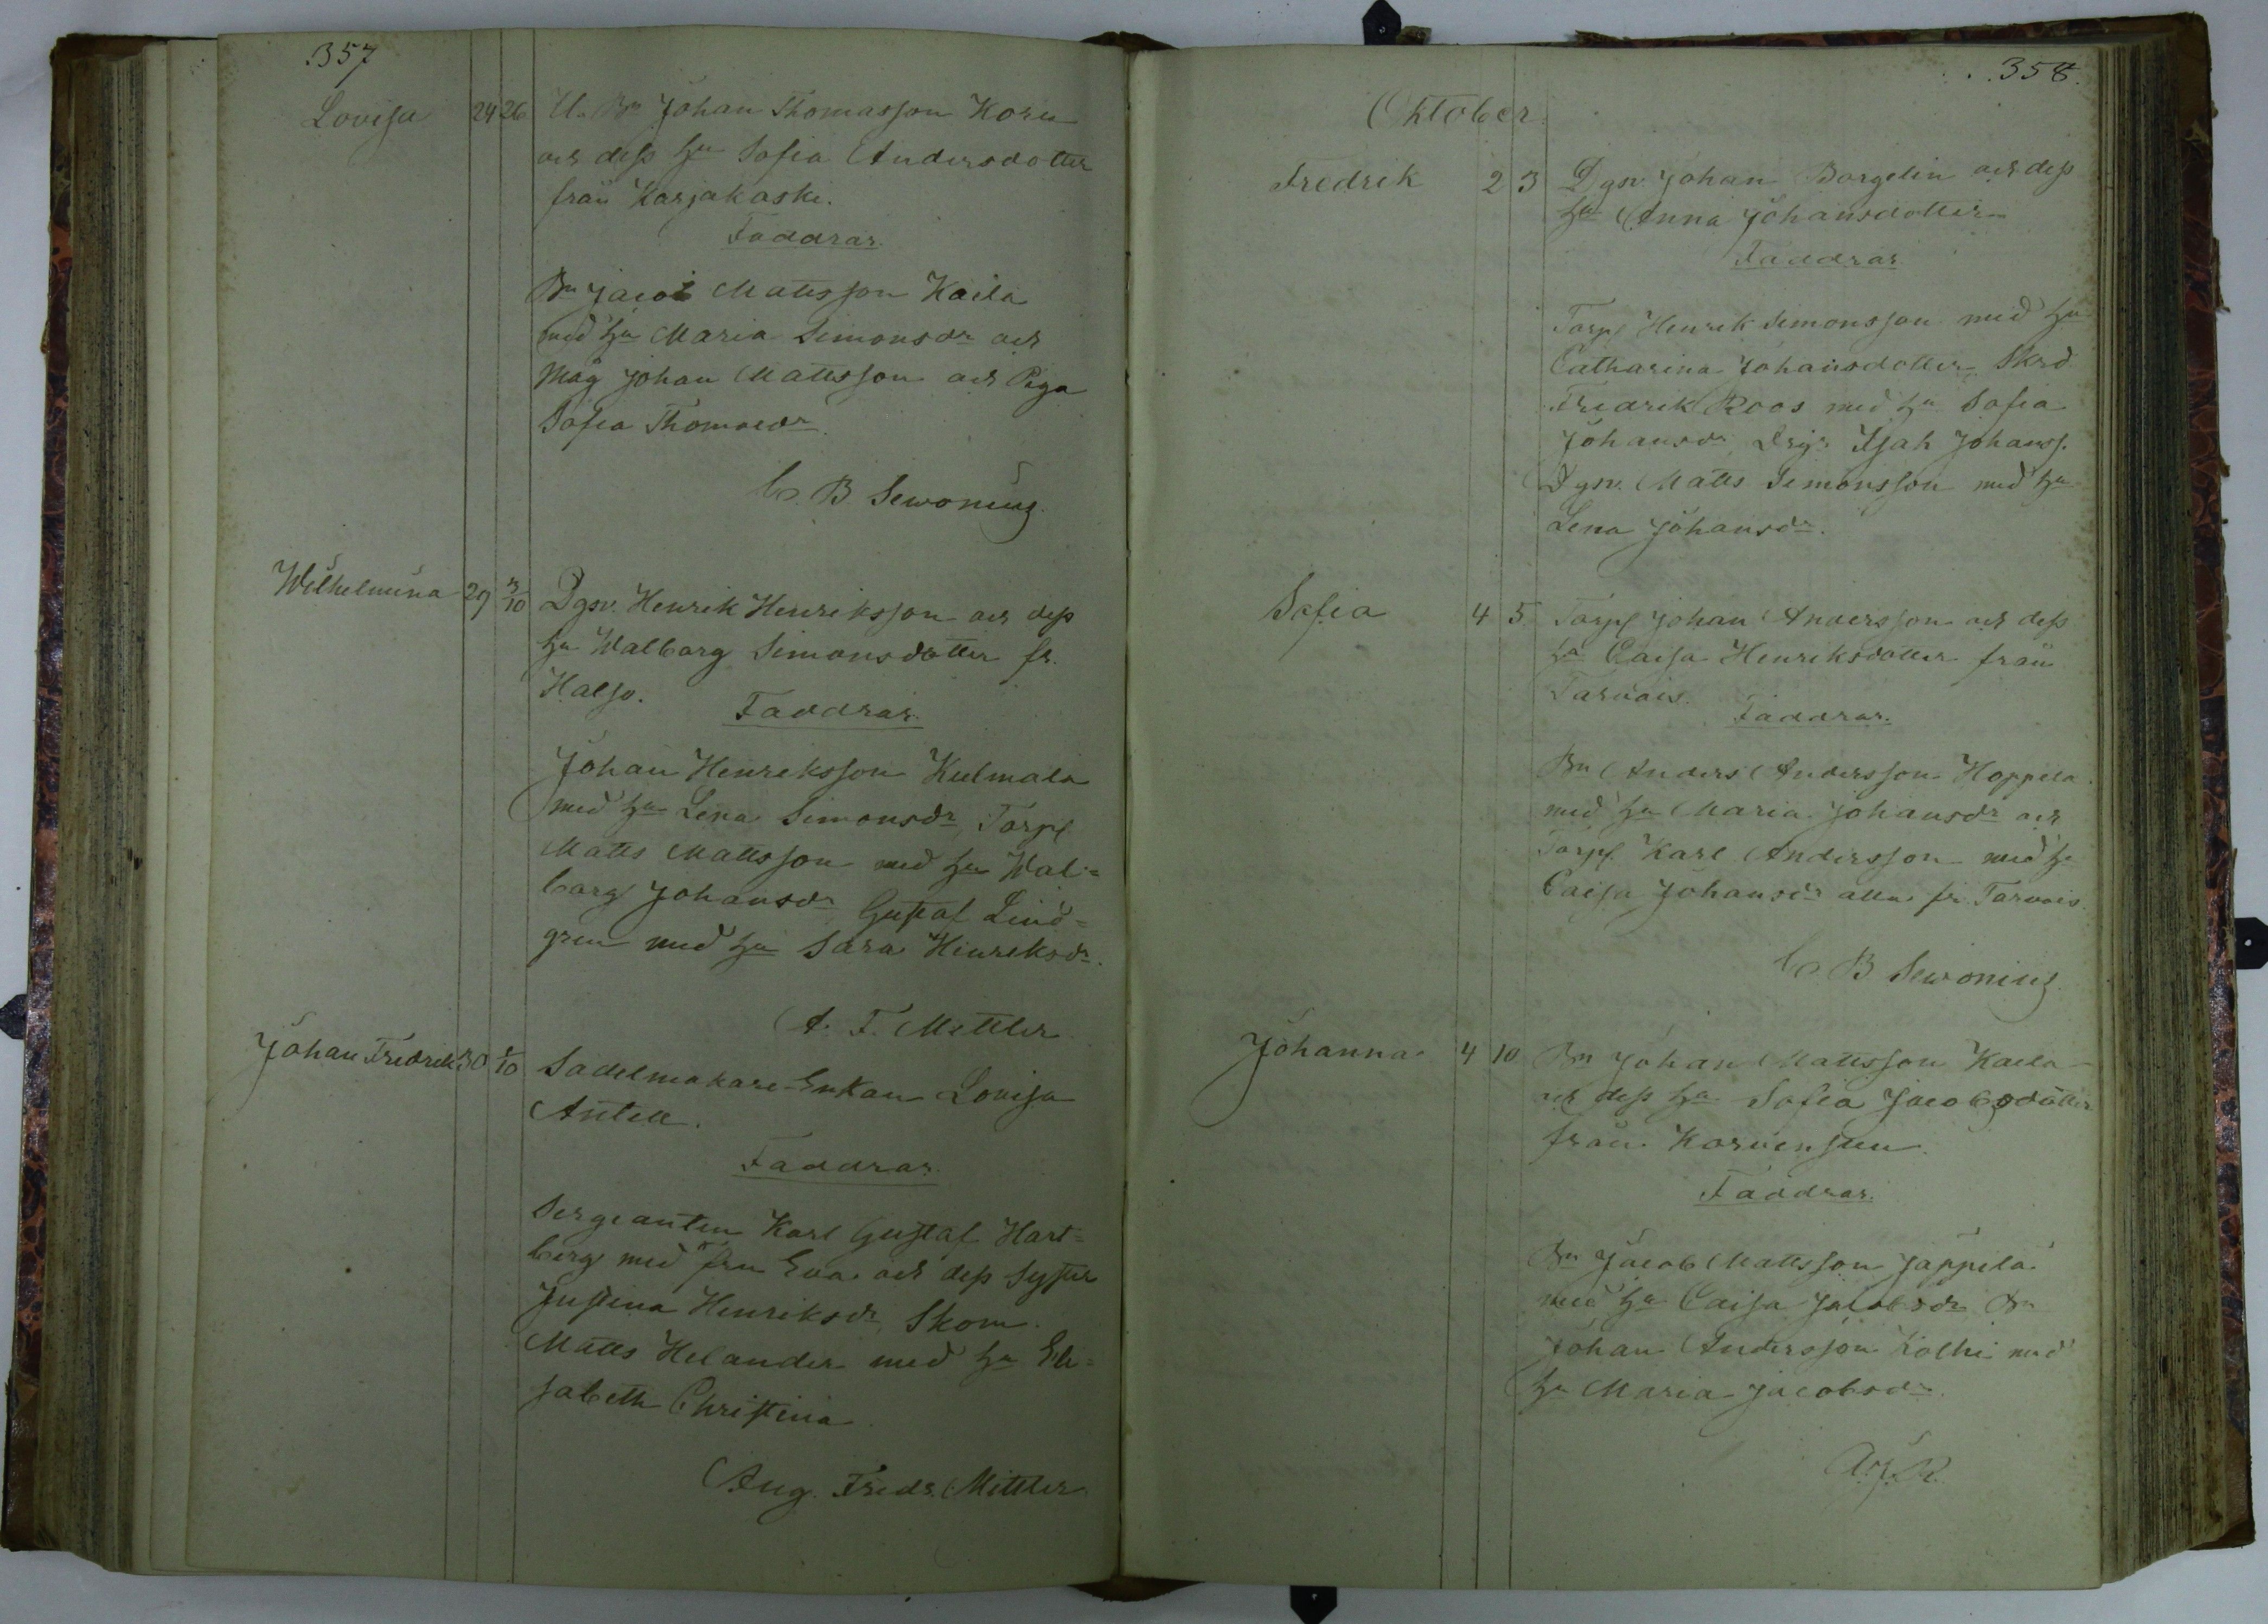 357
Lovisa 24 26 U. Bn Johan Thomasson Koru
och dess hu Sofia Andersdotter
från Karjakoski.
Faddrar.
Bn Jacob Mattsson Kaila
med hu Maria Simonsdr och
Måg Johan Mattsson och Piga
Sofia Thomasdr
C. B. Sewoning.
Wilhelmina 29 3/10 Dgsv. Henrik Henriksson och dess
hu Walborg Simonsdotter fr.
Halso.
Faddrar.
Johan Henriksson Kulmala
med hu Lena Simonsdr, Torpf
Matts Mattsson med hu Wal=
borg Johansdr Gustaf Lind=
gren med hu Sara Henriksdr.
A. F. Mittler
Johan Fredrik 30 /10 Sadelmakare-Enkan Lovisa
Antell.
Faddrar.
Sergeanten Karl Gustaf Hart=
berg med fru Eva och dess syster
Justina Henriksdr, Skom.
Matts Helander med hu Eli=
sabeth Christina
Aug. Fredr. Mittler
358.
Oktober.
Fredrik 2 3 Dgsv. Johan Borgelin och dess
hu Anna Johansdotter
Faddrar
Torpf Henrik Simonsson med hu
Catharina Johansdotter, Skrd.
Fredrik Roos med hu Sofia
Johansdr Drg. Isak Johanss.
Dgsv. Matts Simonsson med hu
Lena Johansdr.
Sofia 4 5 Torpf Johan Andersson och dess
hu Caisa Henriksdotter från
Tarvais.
Faddrar.
Bn Anders Andersson Hoppela
med hu Maria Johansdr och
Torpf. Karl Andersson med hu
Caisa Johansdr alla fr. Tarvais.
C. B. Sewoning.
Johanna 4 10 Bn Johan Mattsson Kaila
och dess hu Sofia Jacobsdotter
från Korvensuu.
Faddrar.
Bn Jacob Mattsson Jäppelä
med hu Caisa Jacobsdr Bn
Johan Andersson Kolhi med
hu Maria Jacobsdr.
A.J.R.